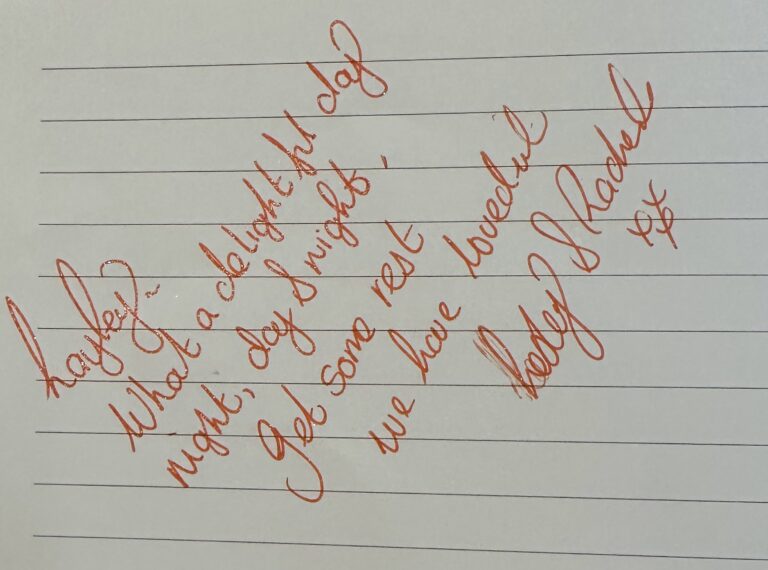 Hayley.
What a delightful day
night, day & night.
Get some rest
we have loved it
Lesley & Rachel
xx